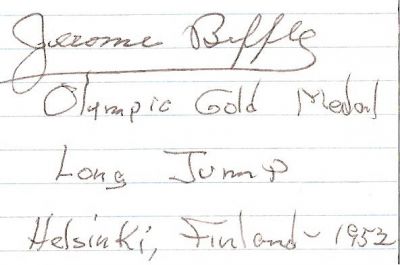 Jerome Biffle
Olympic Gold Medal
Long Jump
Helsinki, Finland - 1952